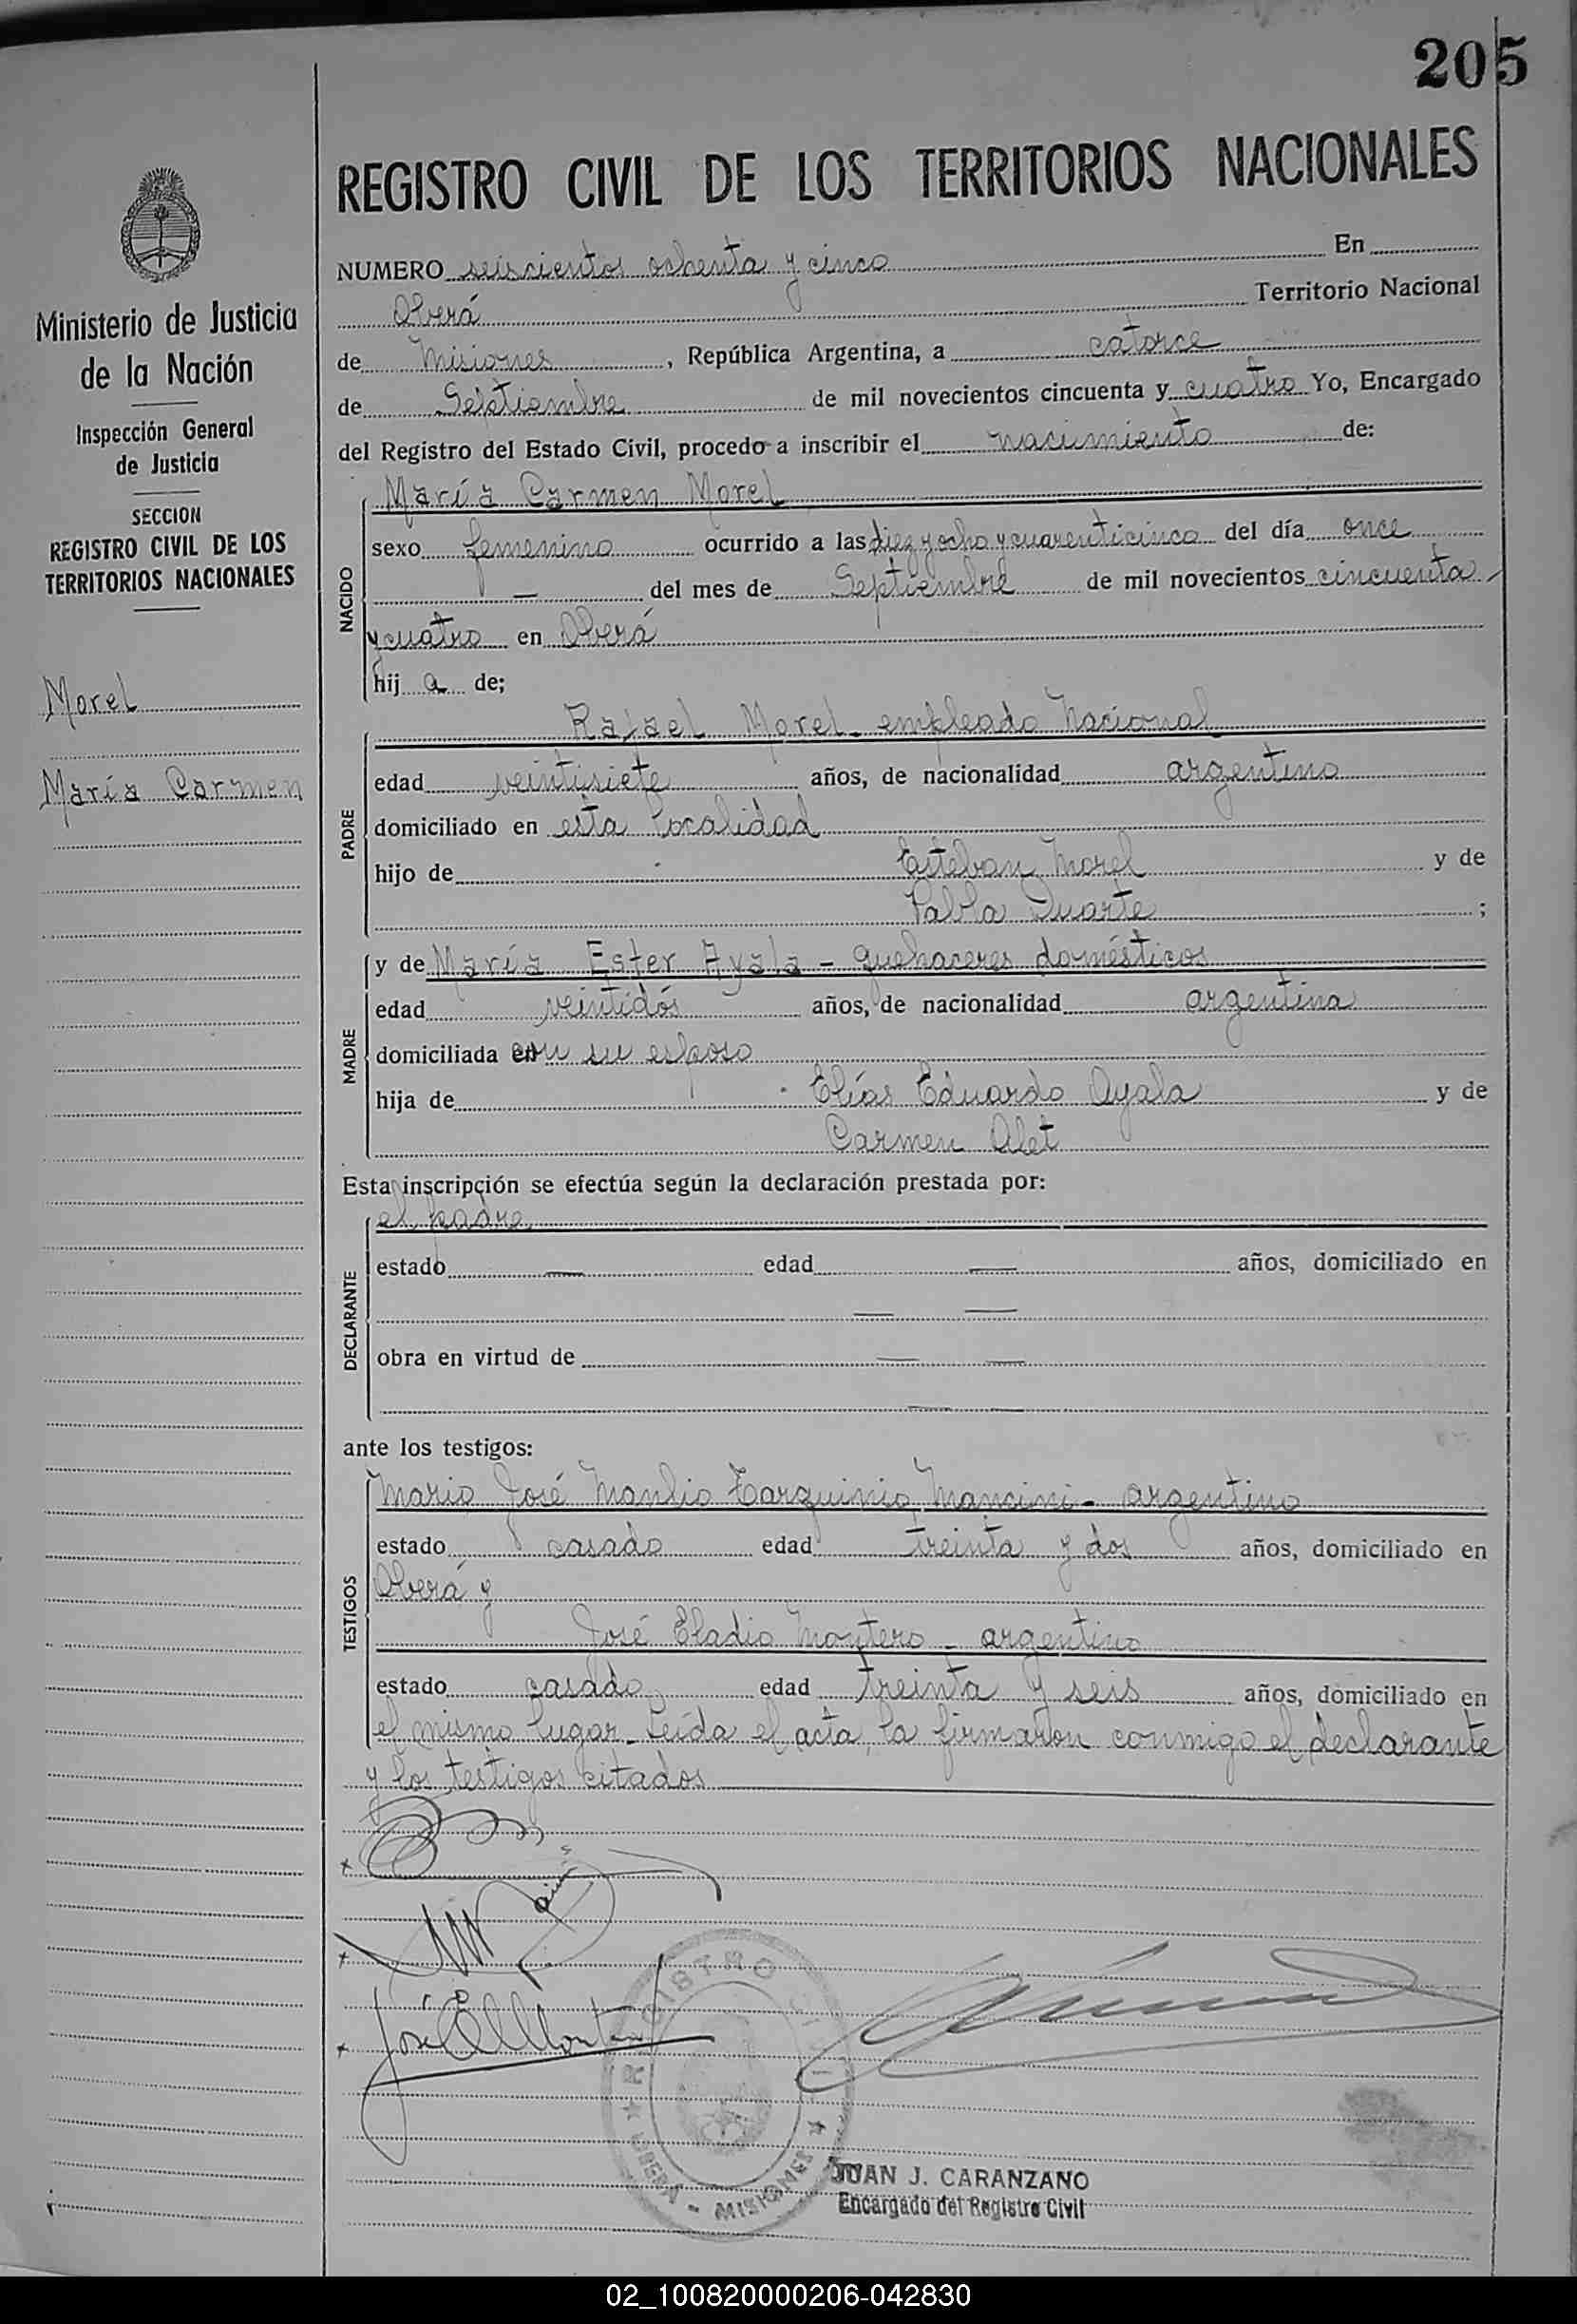 205
REGISTRO CIVIL DE LOS TERRITORIOS NACIONALES
Ministerio de Justicia
de la Nación
Inspección General
de Justicia
SECCION
REGISTRO CIVIL DE LOS
TERRITORIOS NACIONALES
Morel
María Carmen
NUMERO seiscientos ochenta y cinco En
Oberá Territorio Nacional
de Misiones, República Argentina, a catorce
de Septiembre de mil novecientos cincuenta y cuatro Yo, Encargado
del Registro del Estado Civil, procedo a inscribir el nacimiento de:
NACIDO
María Carmen Morel
sexo femenino ocurrido a las diez y ocho y cuarenticinco del día once
— del mes de Septiembre de mil novecientos cincuenta
y cuatro en Oberá
hij a de;
PADRE
Rafael Morel - empleado Nacional
edad veintisiete años, de nacionalidad argentino
domiciliado en esta localidad
hijo de Esteban Morel y de
Pabla Duarte ;
MADRE
y de María Ester Ayala - quehaceres domésticos
edad veintidós años, de nacionalidad argentina
domiciliada con su esposo
hija de Elías Eduardo Ayala y de
Carmen Alet
Esta inscripción se efectúa según la declaración prestada por:
DECLARANTE
el padre
estado — edad — años, domiciliado en
— —
obra en virtud de — —
— —
ante los testigos:
TESTIGOS
Mario José Manlio Tarquinio Mancini - argentino
estado casado edad treinta y dos años, domiciliado en
Oberá y
José Eladio Montero - argentino
estado casado edad treinta y seis años, domiciliado en
el mismo lugar. Leída el acta, la firmaron conmigo el declarante
y los testigos citados
José E Montero
REGISTRO CIVIL
OBERA - MISIONES
JUAN J. CARANZANO
Encargado del Registro Civil
02_100820000206-042830